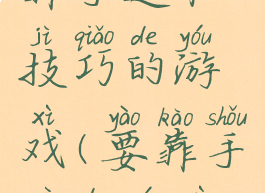 jì qiǎo de yóu
技巧的游
xì yào kào shǒu
戏(要靠手